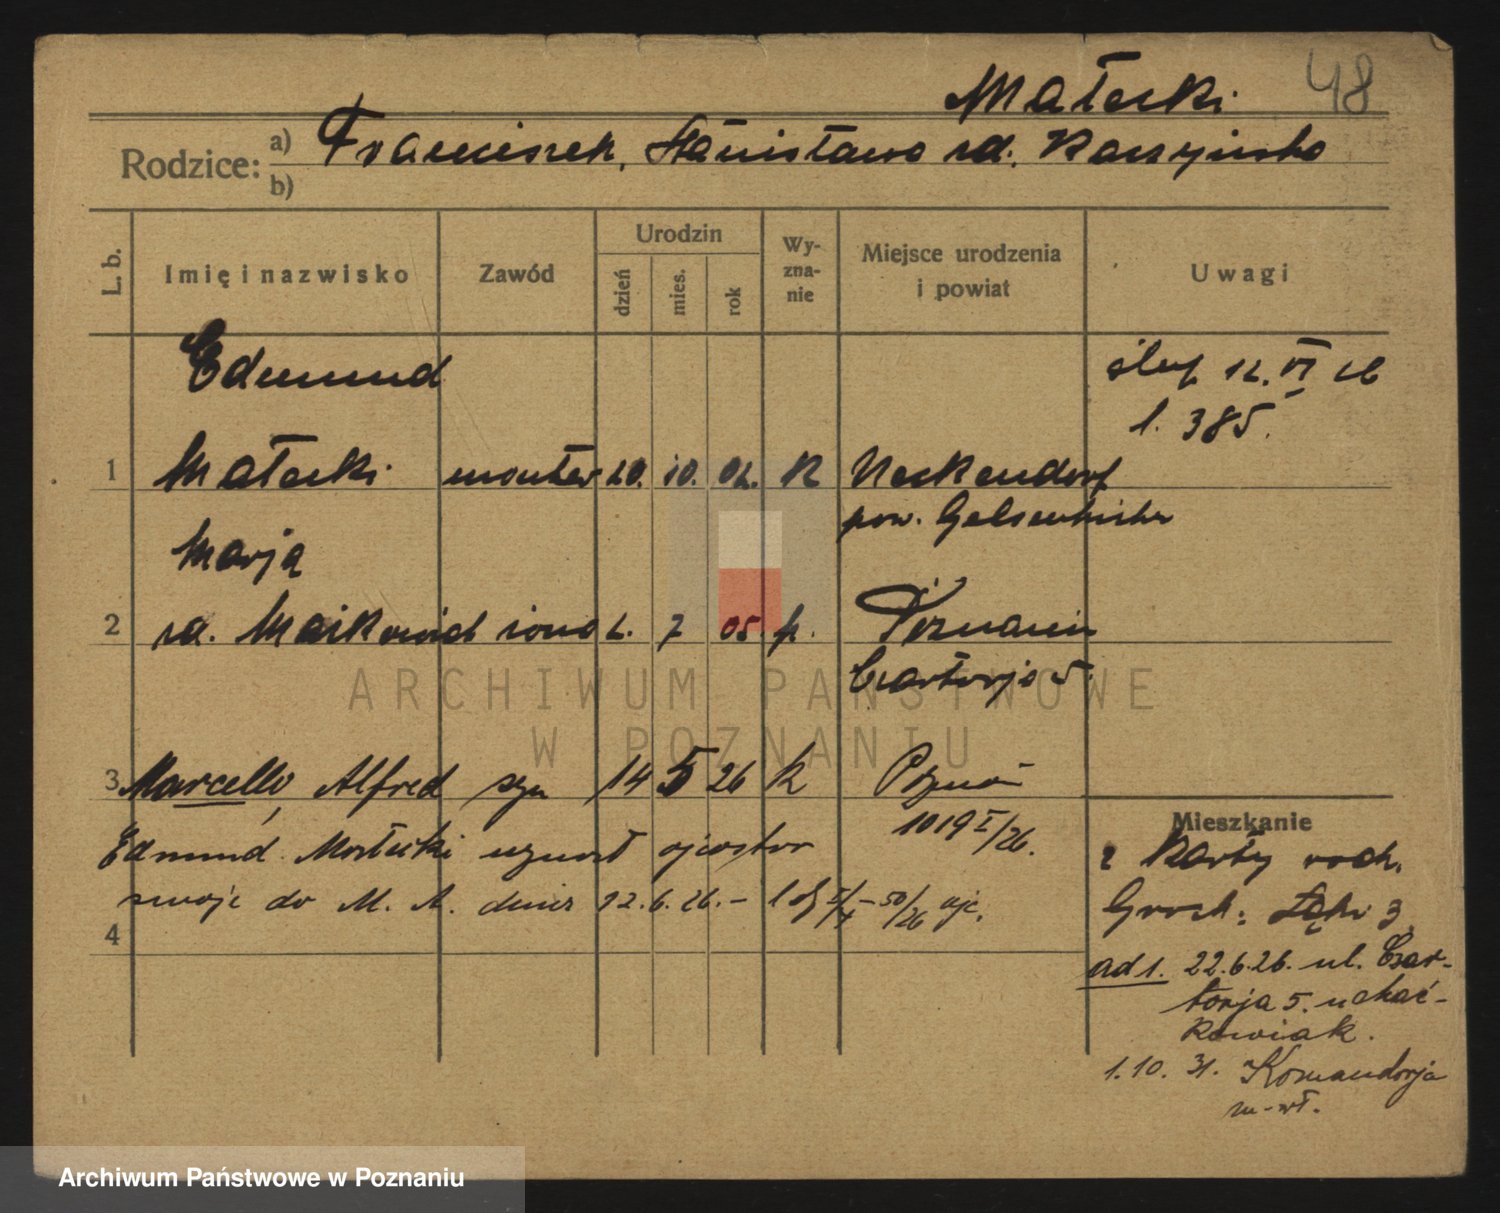 Małecki 48
Rodzice: a) Franciszek, Stanisława zd. Kaczyńska
b)
L. b. Imię i nazwisko Zawód Urodzin dzień mies. rok Wyznanie Miejsce urodzenia i powiat Uwagi
Edmund ślub 12. VI 26
l. 385.
1 Małecki monter 20. 10. 02. R Neckendorf
pow. Gelsenkirchen
Marja
2 zd. żona 2. 7 05. k. Poznań
Czartorja 5.
ARCHIWUM PAŃSTWOWE
W POZNANIU
3 Marcelli, Alfred syn 14 5 26 k Poznań
1019 I/26.
Edmund Małecki uznał ojcostwo
swoje do M. A. dnia 12.6.26. –
4
Mieszkanie
z karty rodz.
Groch. Łąki 3
ad 1. 22.6.26. ul. Czar-
torja 5. u
1. 10. 31. Komandorja
Archiwum Państwowe w Poznaniu